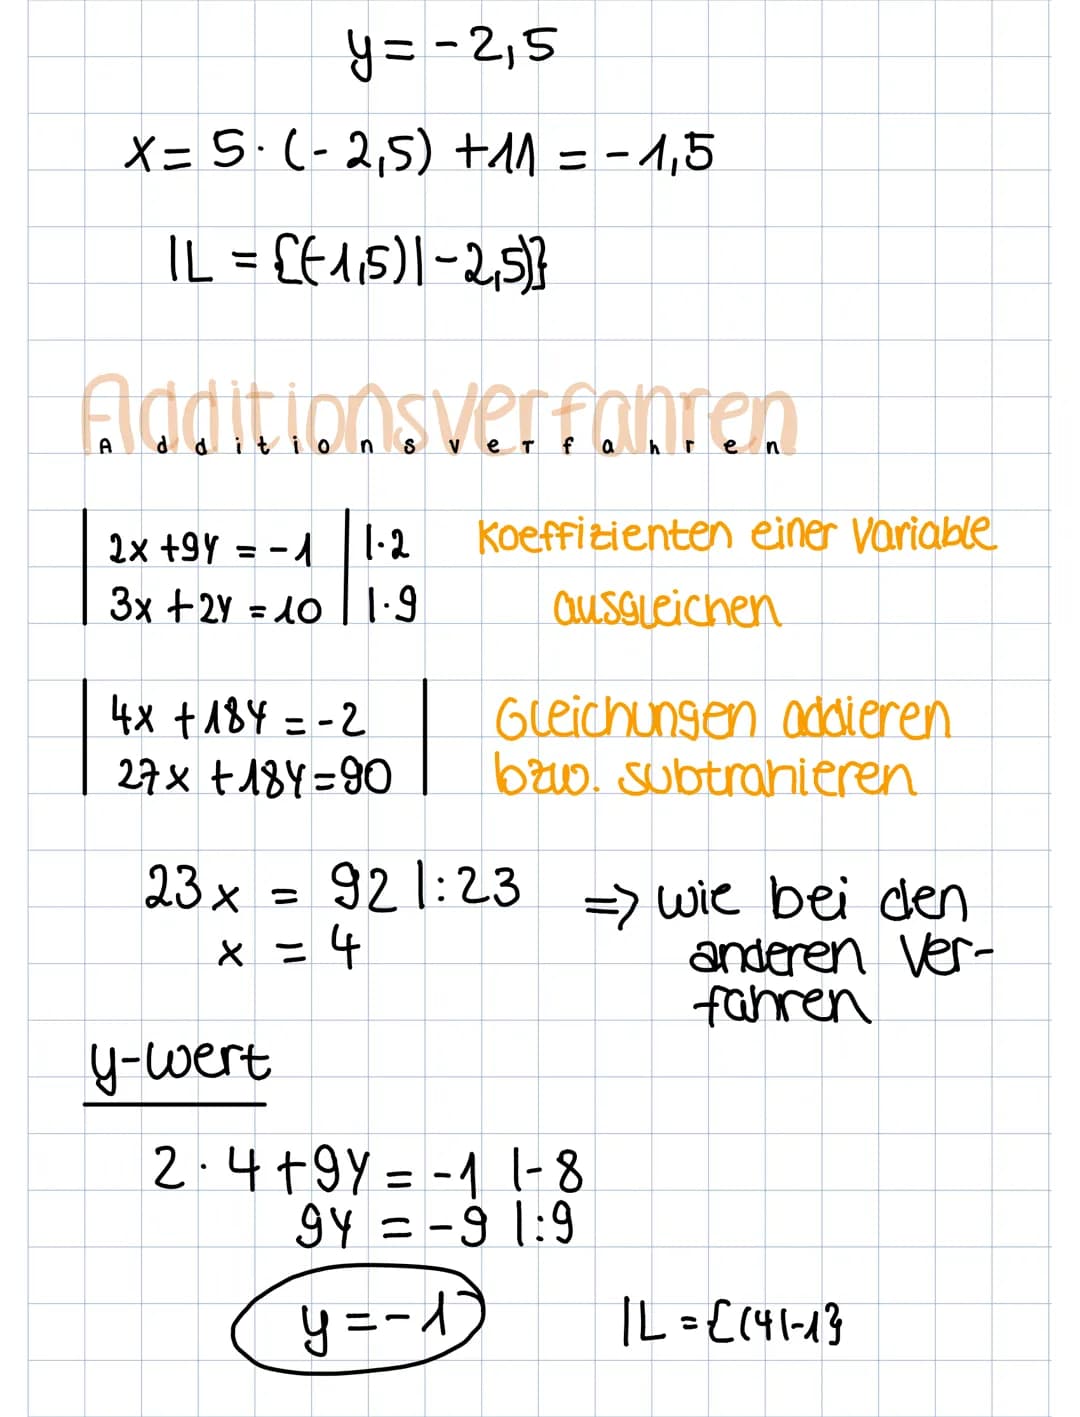 y = -2,5
x = 5·(-2,5) +11 = -1,5
𝕃 = {(-1,5)|-2,5)}
Additionsverfahren
Additionsverfahren
2x +9y = -1 |·2 Koeffizienten einer Variable
3x +2y = 10 |·9 ausgleichen
4x +18y = -2 Gleichungen addieren
27x +18y = 90 bzw. subtrahieren
23x = 92 |:23 => wie bei den
x = 4 anderen Ver-
fahren
y-Wert
2·4 +9y = -1 |-8
9y = -9 |:9
y = -1 𝕃 = {(4|-1}